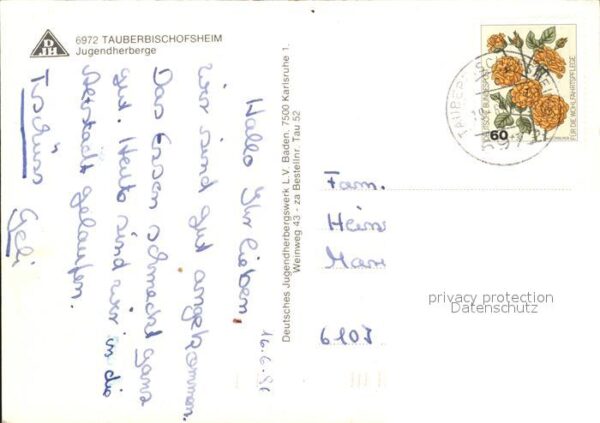 DJH
6972 TAUBERBISCHOFSHEIM
Jugendherberge
16.6.86
Hallo Ihr lieben,
wir sind gut angekommen.
Das Essen schmeckt ganz
gut. Heute sind wir in die
Altstadt gelaufen.
Tschüss Geli
Deutsches Jugendherbergswerk L.V. Baden, 7500 Karlsruhe 1.
Weinweg 43 - za Bestellnr. Tau 52
DEUTSCHE BUNDESPOST
60
FÜR DIE WOHLFAHRTSPFLEGE
Fam.
Hein
6103
privacy protection
Datenschutz